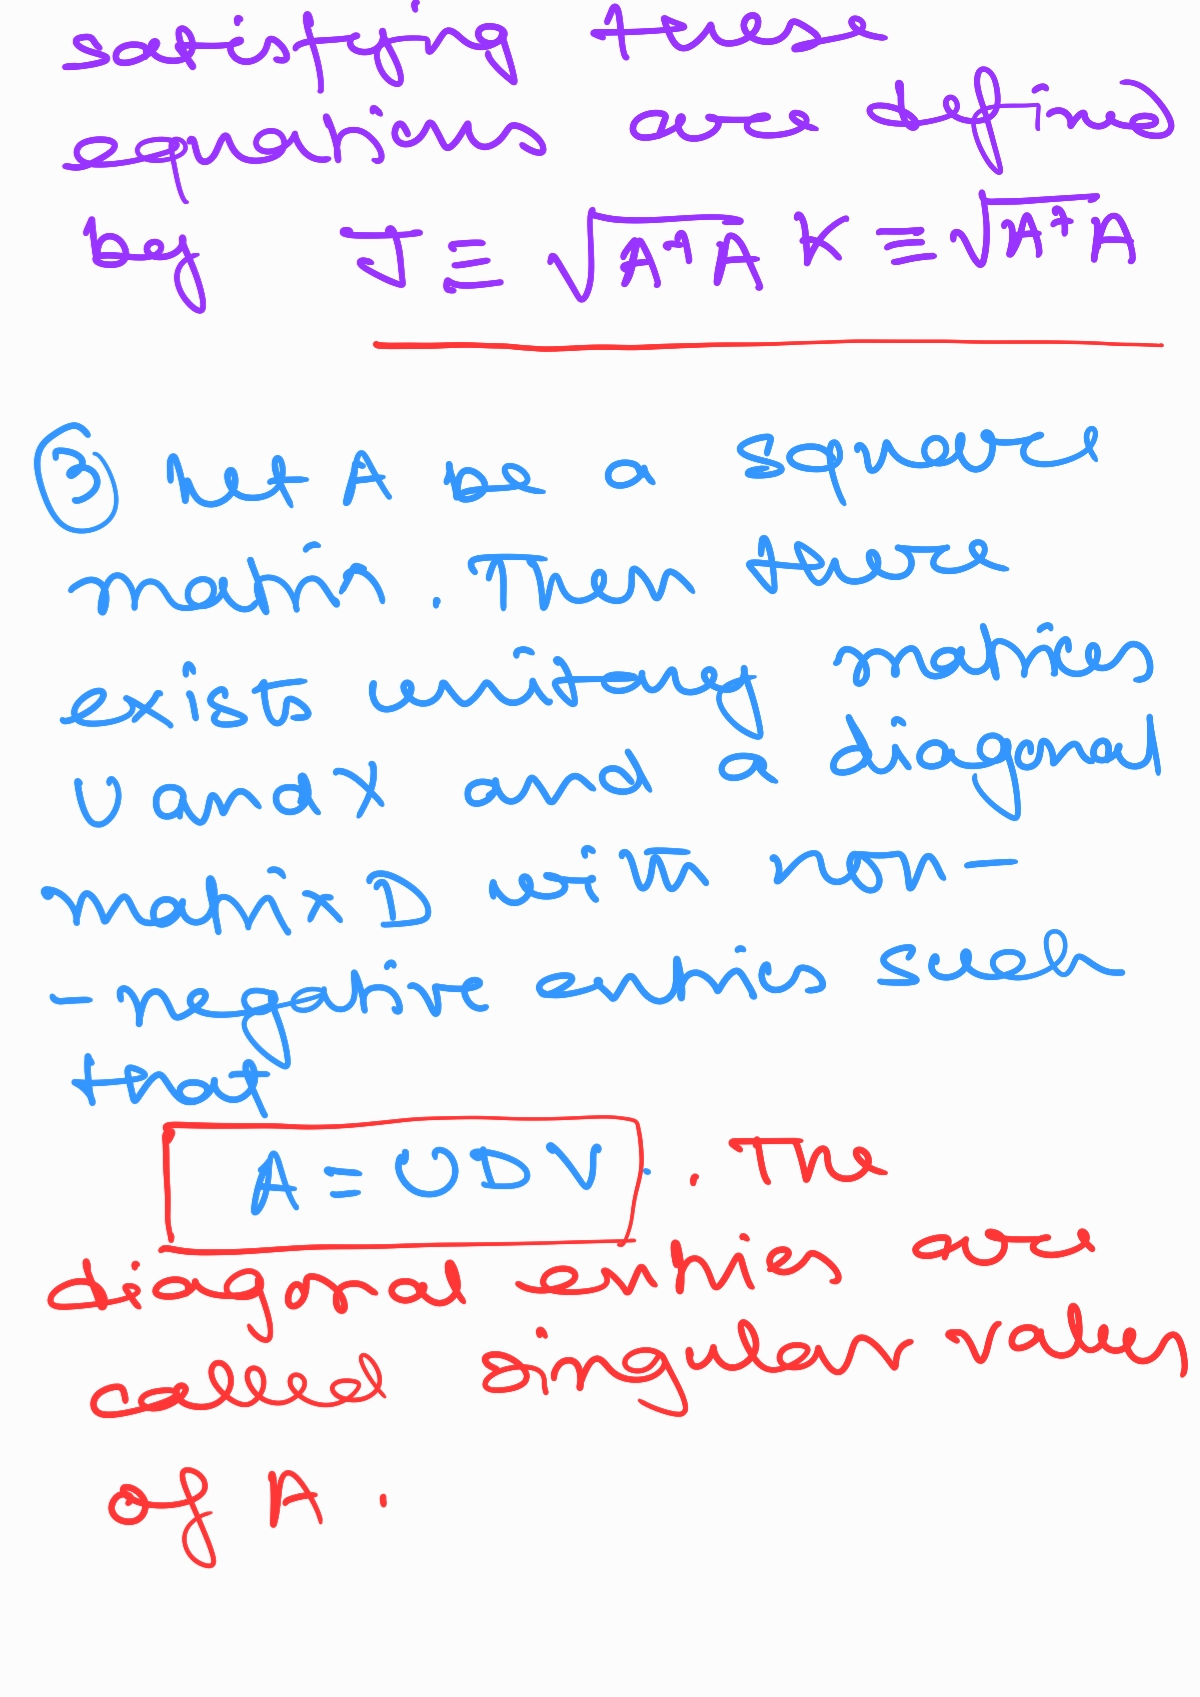 satisfying these
equations are defined
by J ≡ √A†A K ≡ √A†A
③ Let A be a square
matrix. Then there
exists unitary matrices
U and X and a diagonal
matrix D with non-
-negative entries such
that
A = UDV. . The
diagonal entries are
called singular values
of A.